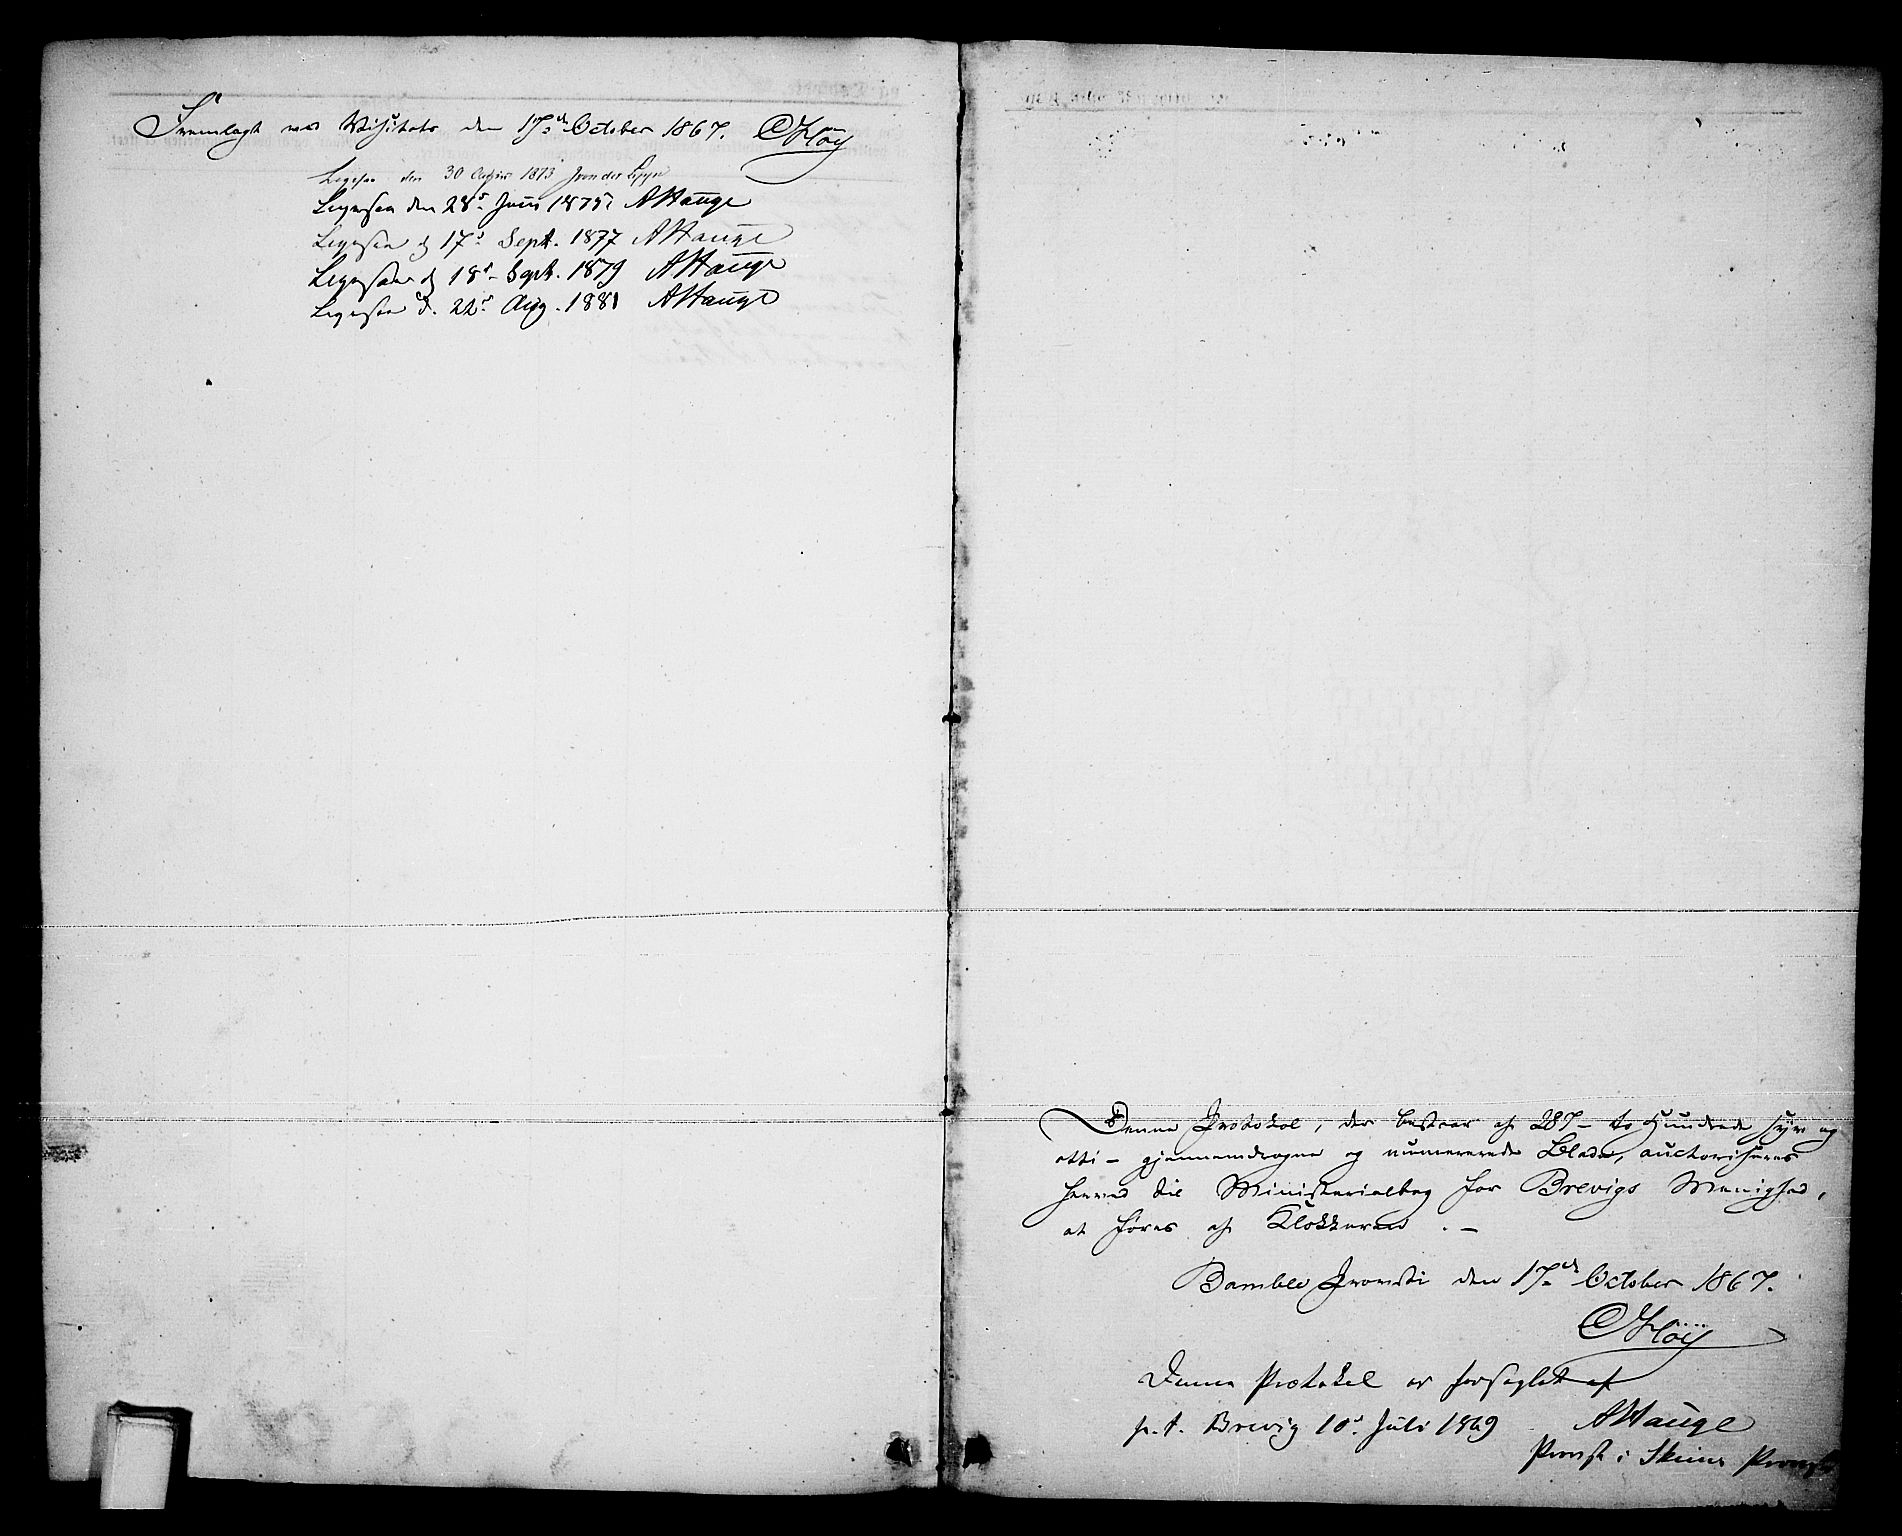 Fremlagt ved Visitats den 17de October 1867. Høÿ
Ligesaa den 30 1873
Ligesaa den 28de Juni 1875 AHauge
Ligesaa d 17d Sept. 1877 AHauge
Ligesaa d 18d Sept. 1879 AHauge
Ligesaa d. 22d Aug. 1881 AHauge
Denne Protokol, der bestaar af 287 - to Hundrede syv og
otti - gjennemdragne og numererede Blade, auctoriseres
herved til Ministerialbog for Brevigs Menighed,
at føres af Klokkeren . -
Bamble Provsti den 17de October 1867.
Høÿ
Denne Protokol er forseglet af
p. t. Brevig 10d Juli 1869 AHauge
Provst i Skiens Provsti